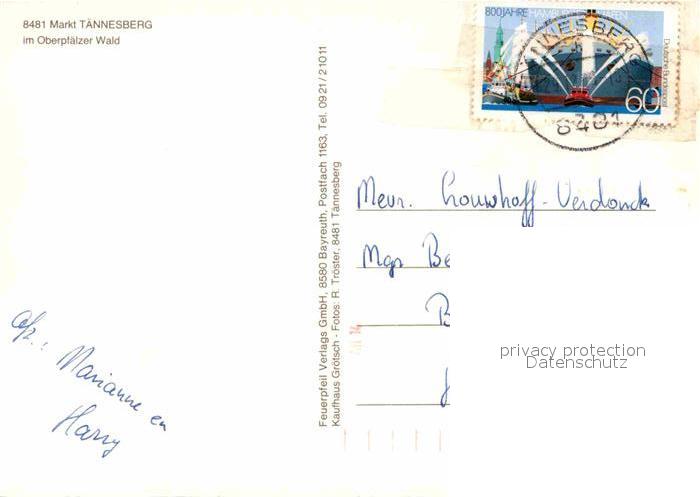 8481 Markt TÄNNESBERG
im Oberpfälzer Wald
800 JAHRE HAMBURGER HAFEN
Deutsche Bundespost
60
TÄNNESBERG
8481
Feuerpfeil Verlags GmbH, 8580 Bayreuth, Postfach 1163, Tel. 0921/21011
Kaufhaus Grötsch - Fotos: R. Tröster, 8481 Tännesberg
Mevr. -Verdonck
Mgr Be
B
privacy protection
Datenschutz
afz.: Marianne en
Harry